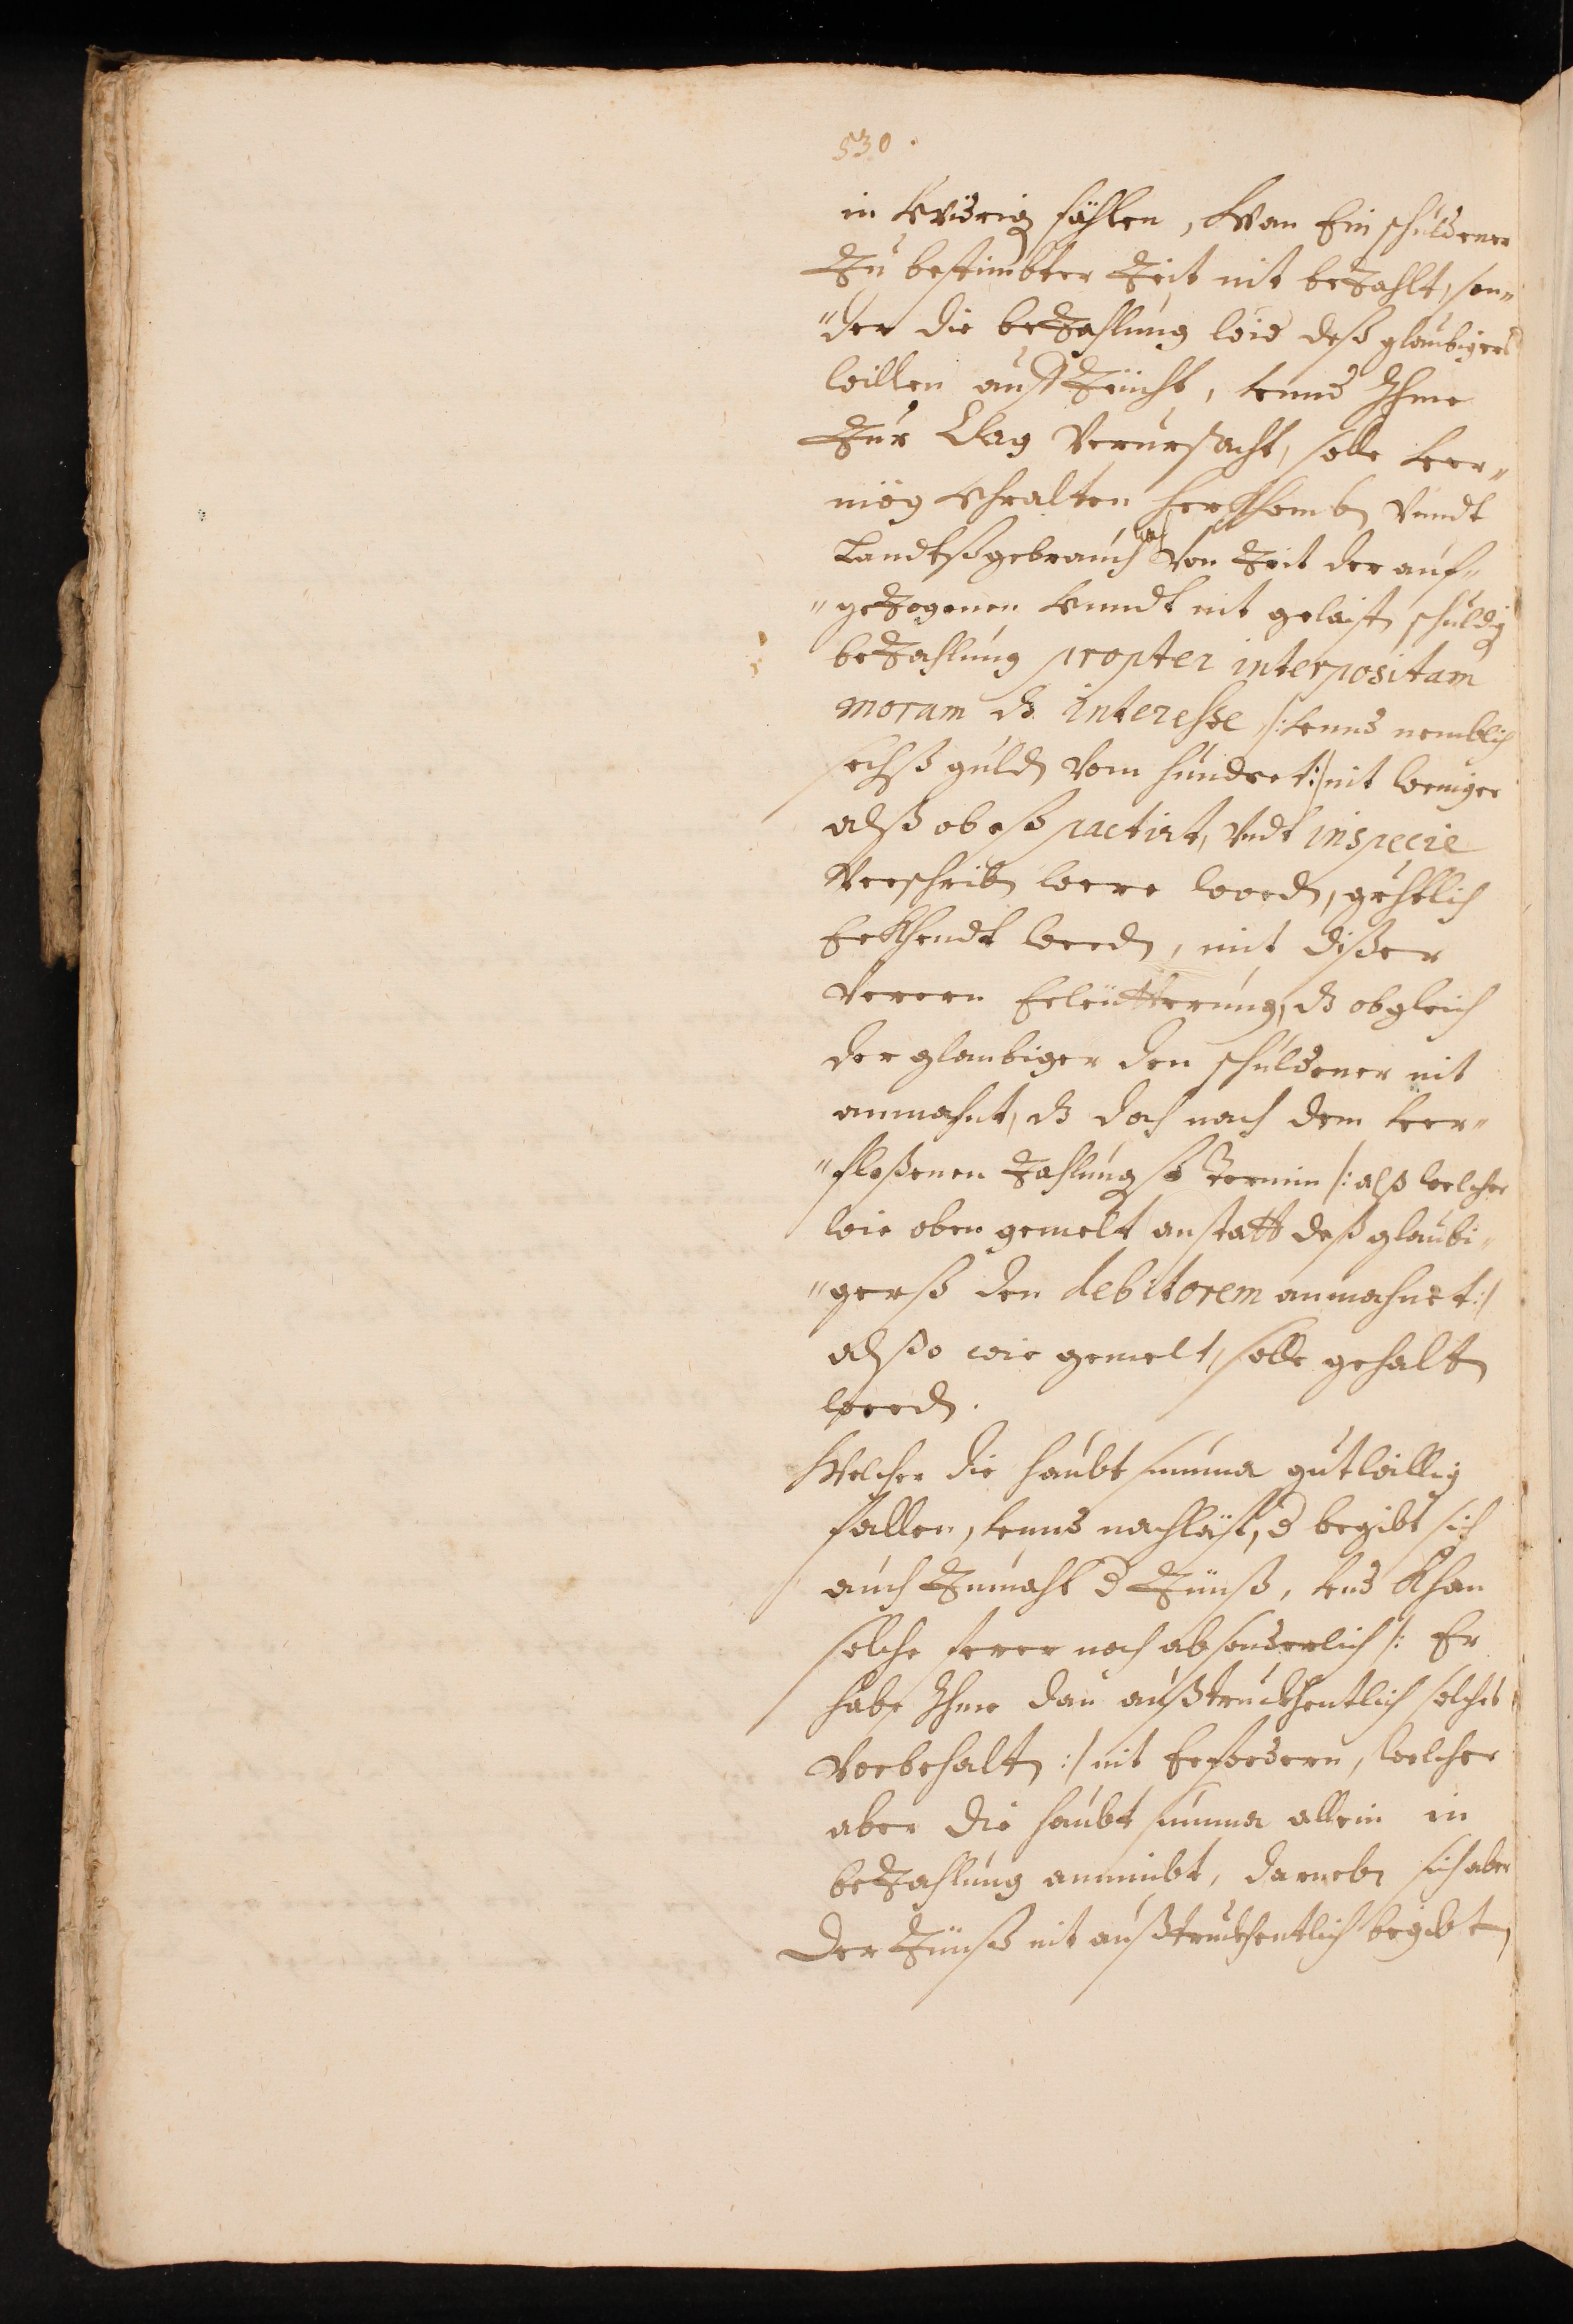 530.
in widrig fählen, wan Ein schuldener
Zu bestimbter Zeit nit beZahlt, son„
„der die beZahlung wid deß glaubigers
willen auffZeücht, vnnd Ihme
Zur Clag verursacht, solle ver„
mög vhralten herkhomben vnndt
Landtßgebrauch von Zeit der auf„
„geZogenen vnndt nit gelaist schuldig
beZahlung propter interpositam
moram dz interesse /: vnnd nemblich
sechß guld vom hundret :/ nit weniger
alß ob eß pactirt, vndt in specie
verschriben were word, guettlich
Erkhendt werd, mit dißer
verern Erleütterung, dz obgleich
der glaubiger den schuldener nit
anmahnt, dz doch nach dem ver„
„floßenen Zahlungß Termin /: alß welcher
wie oben gemelt anstatt deß glaubi„
„gerß den debitorem anmahnet :/
alßo wie gemelt, solle gehalten
werd.
Welcher die haubt summa gutwillig
fallen, vnnd nachläst, d begibt sich
auch Zumahl d Zünß, vnd khan
solche ferer noch absonderlich /: Er
habe Ihme dan außtruckhentlich solches
vorbehalten :/ nit Erfordern, welcher
aber die haubt summa allein in
beZahlung annimbt, darneben sich aber
der Zünß nit außtruckhentlich begibt,